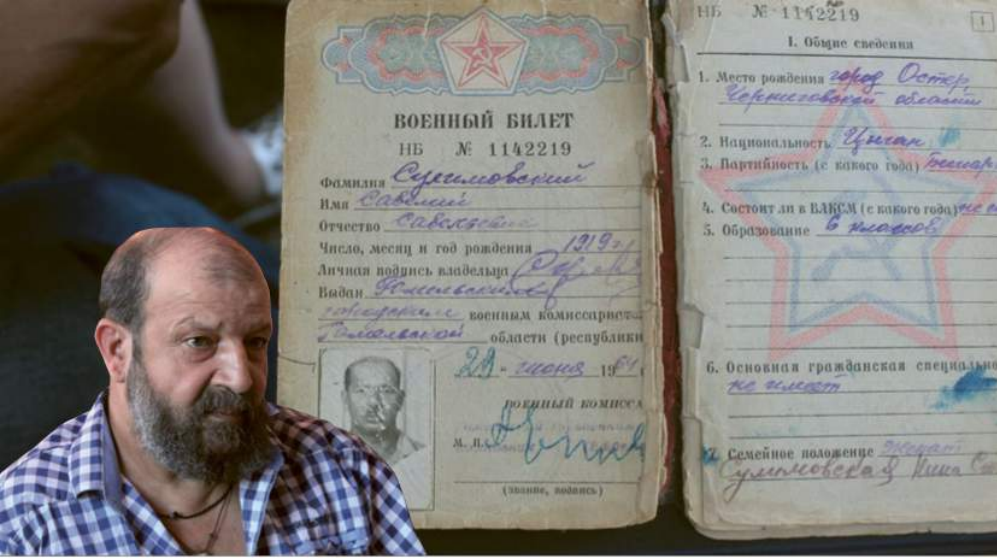 ВОЕННЫЙ БИЛЕТ
НБ № 1142219
Фамилия
Имя Савелий
Отчество Савельевич
Число, месяц и год рождения 1919 г.
Личная подпись владельца
Выдан Гомельским
городским военным комиссариат
Гомельской области (республики
29 июня 196
военный комисса
М. П.
(звание, подпись)
НБ № 1142219
1
1. Общие сведения
1. Место рождения город Остер
Черниговской области
2. Национальность Цыган
3. Партийность (с какого года)
4. Состоит ли в ВЛКСМ (с какого года) не
5. Образование 6 классов
6. Основная гражданская специально
не имеет
7. Семейное положение Женат
Нина